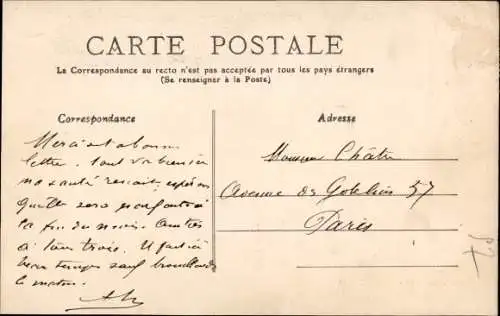 CARTE POSTALE
La Correspondance au recto n'est pas acceptée par tous les pays étrangers
(Se renseigner à la Poste)
Correspondance
Adresse
Merci de ta bonne
lettre. tout va bien ici
ma santé renait, espérons
qu'elle sera parfaite à
la fin du mois. Amitiés
à tous trois. Il fait ici
beau temps sauf brouillards
le matin.
Monsieur Châtre
Avenue des Gobelins 57
Paris